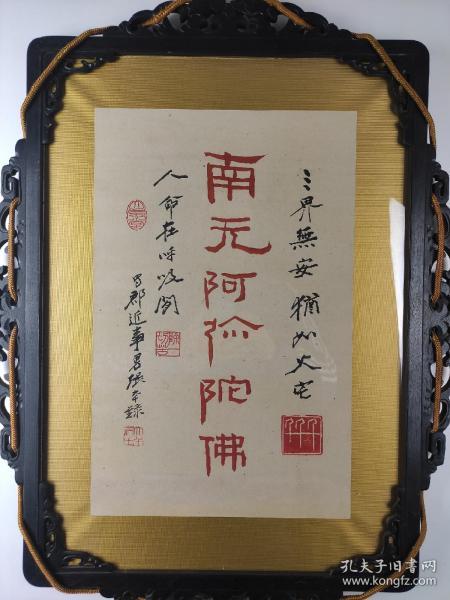 三界無安 猶如火宅
南无阿弥陀佛
人命在呼吸間
蜀郡近事男張
孔夫子旧书网
www.kongfz.com